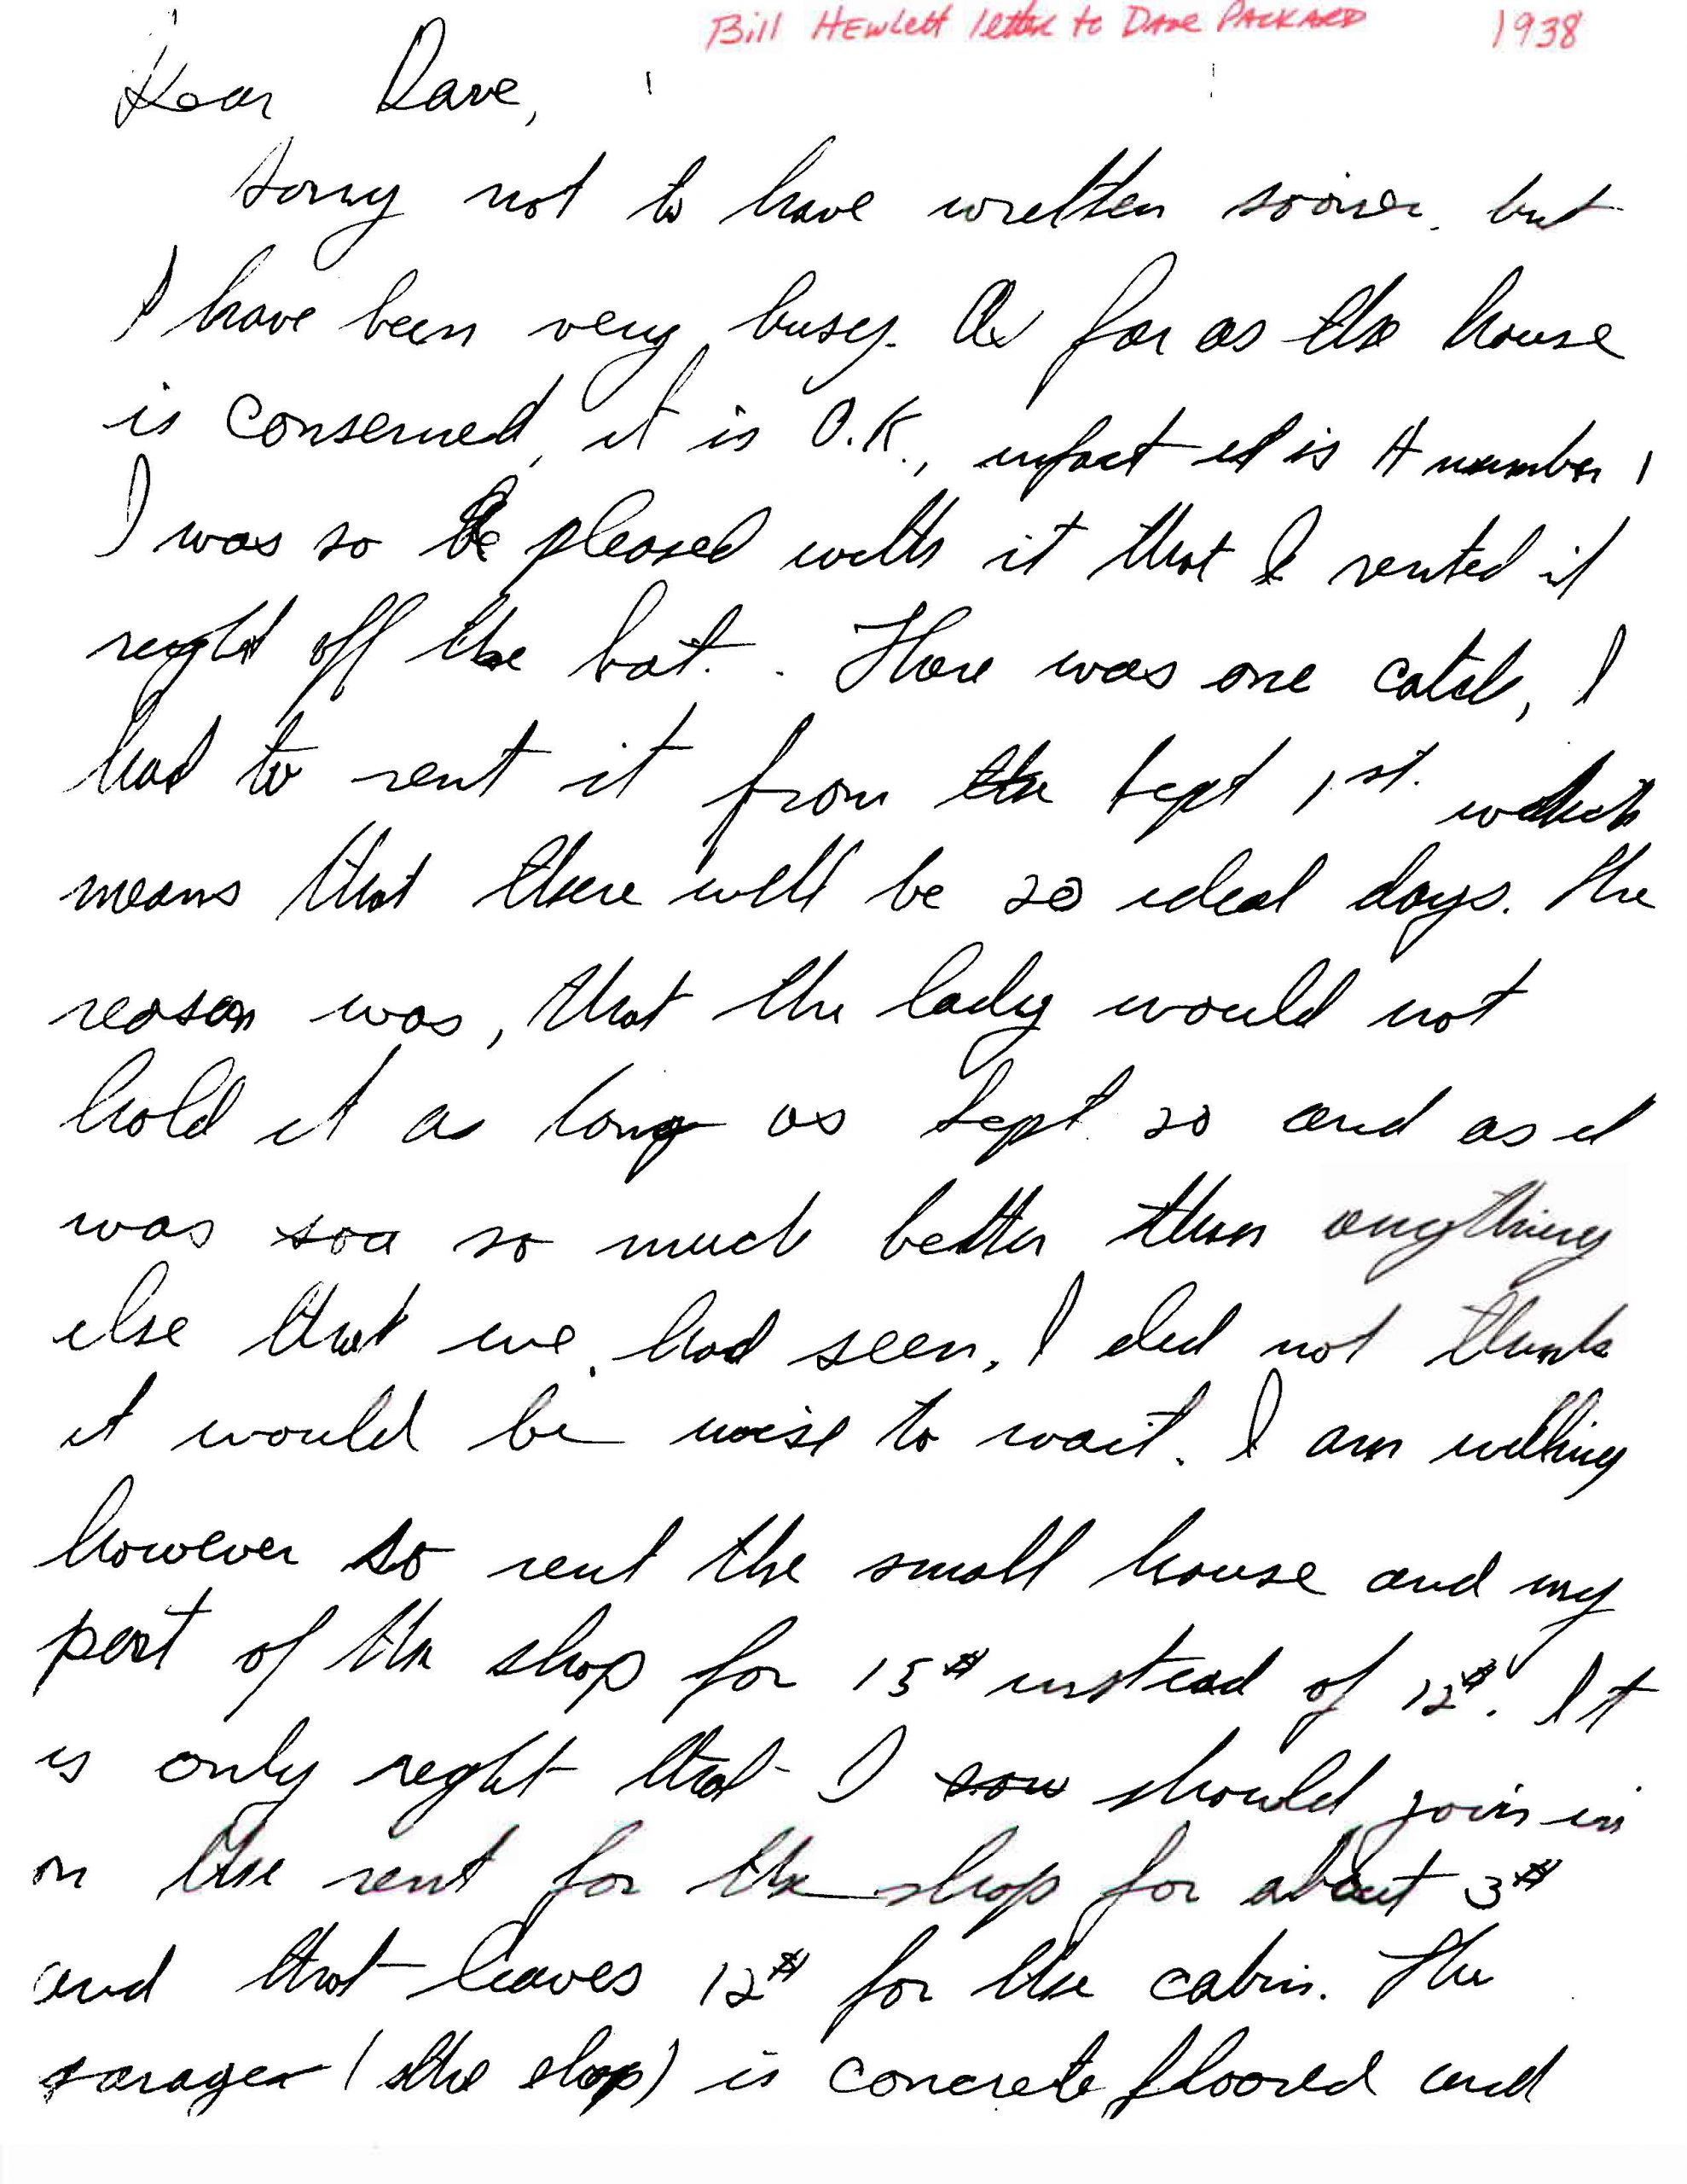 Bill Hewlett letter to Dave Packard 1938
Dear Dave,
Sorry not to have written sooner, but
I have been very busy. As far as the house
is conserned, it is O.K., infact it is A number 1
I was so pleased with it that I rented it
right off the bat. There was one catch, I
had to rent it from the Sept 1st. which
means that there will be 20 ideal days. The
reason was, that the lady would not
hold it as long as Sept 20 and as it
was soa so much better then anything
else that we had seen, I did not think
it would be wise to wait. I am willing
however to rent the small house and my
part of the shop for 15$ instead of 12$. It
is only right that I sow should join in
on the rent for the shop for about 3$
and that leaves 12$ for the cabin. The
garage (the shop) is concrete floored and